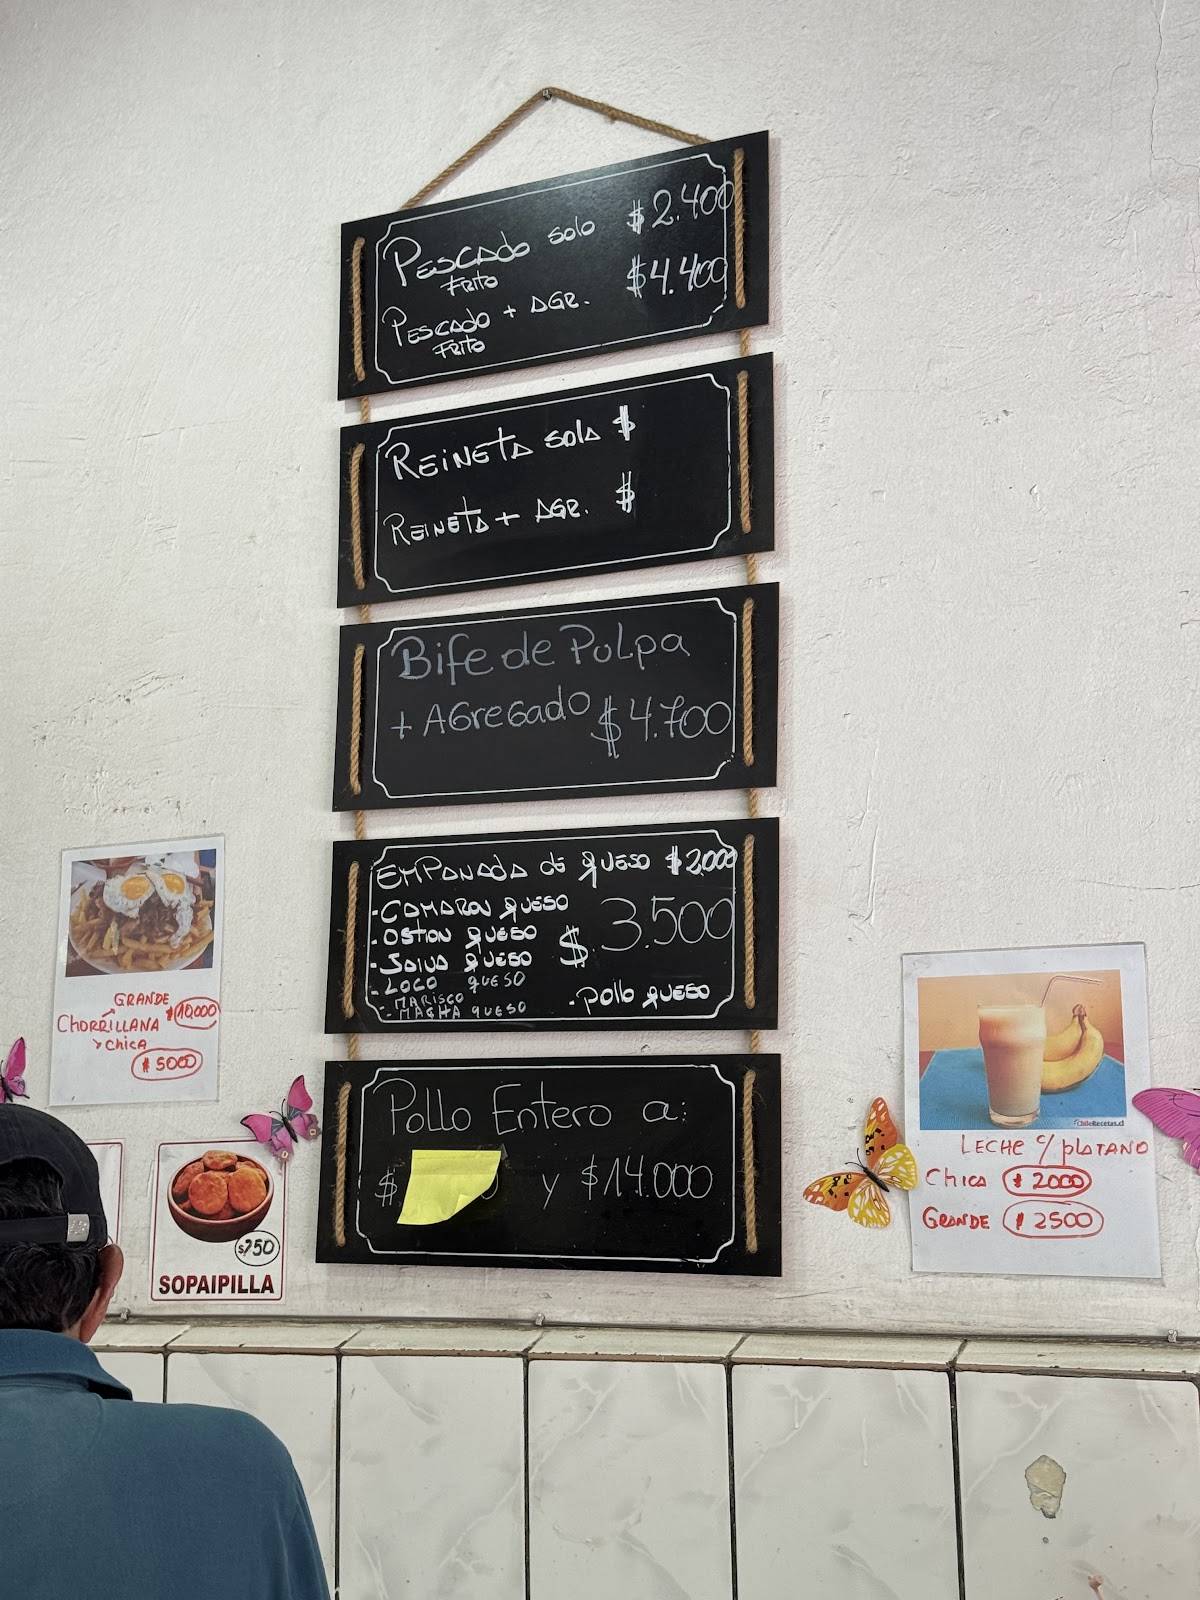 PESCADO SOLO $2.400
FRITO
PESCADO + AGR. $4.400
FRITO
REINETA SOLA $
REINETA + AGR. $
Bife de Pulpa
+ AGregado $4.700
EMPANADA DE QUESO $2.000
- CAMARON QUESO
- OSTION QUESO
- JAIVA QUESO
- LOCO QUESO
- MARISCO
- MACHA QUESO
$ 3.500
- Pollo QUESO
Pollo Entero a:
$ y $14.000
GRANDE $10,000
CHORRILLANA
chica
$5000
$750
SOPAIPILLA
ChileRecetas.cl
LECHE C/ PLATANO
Chica $2000
GRANDE $2500